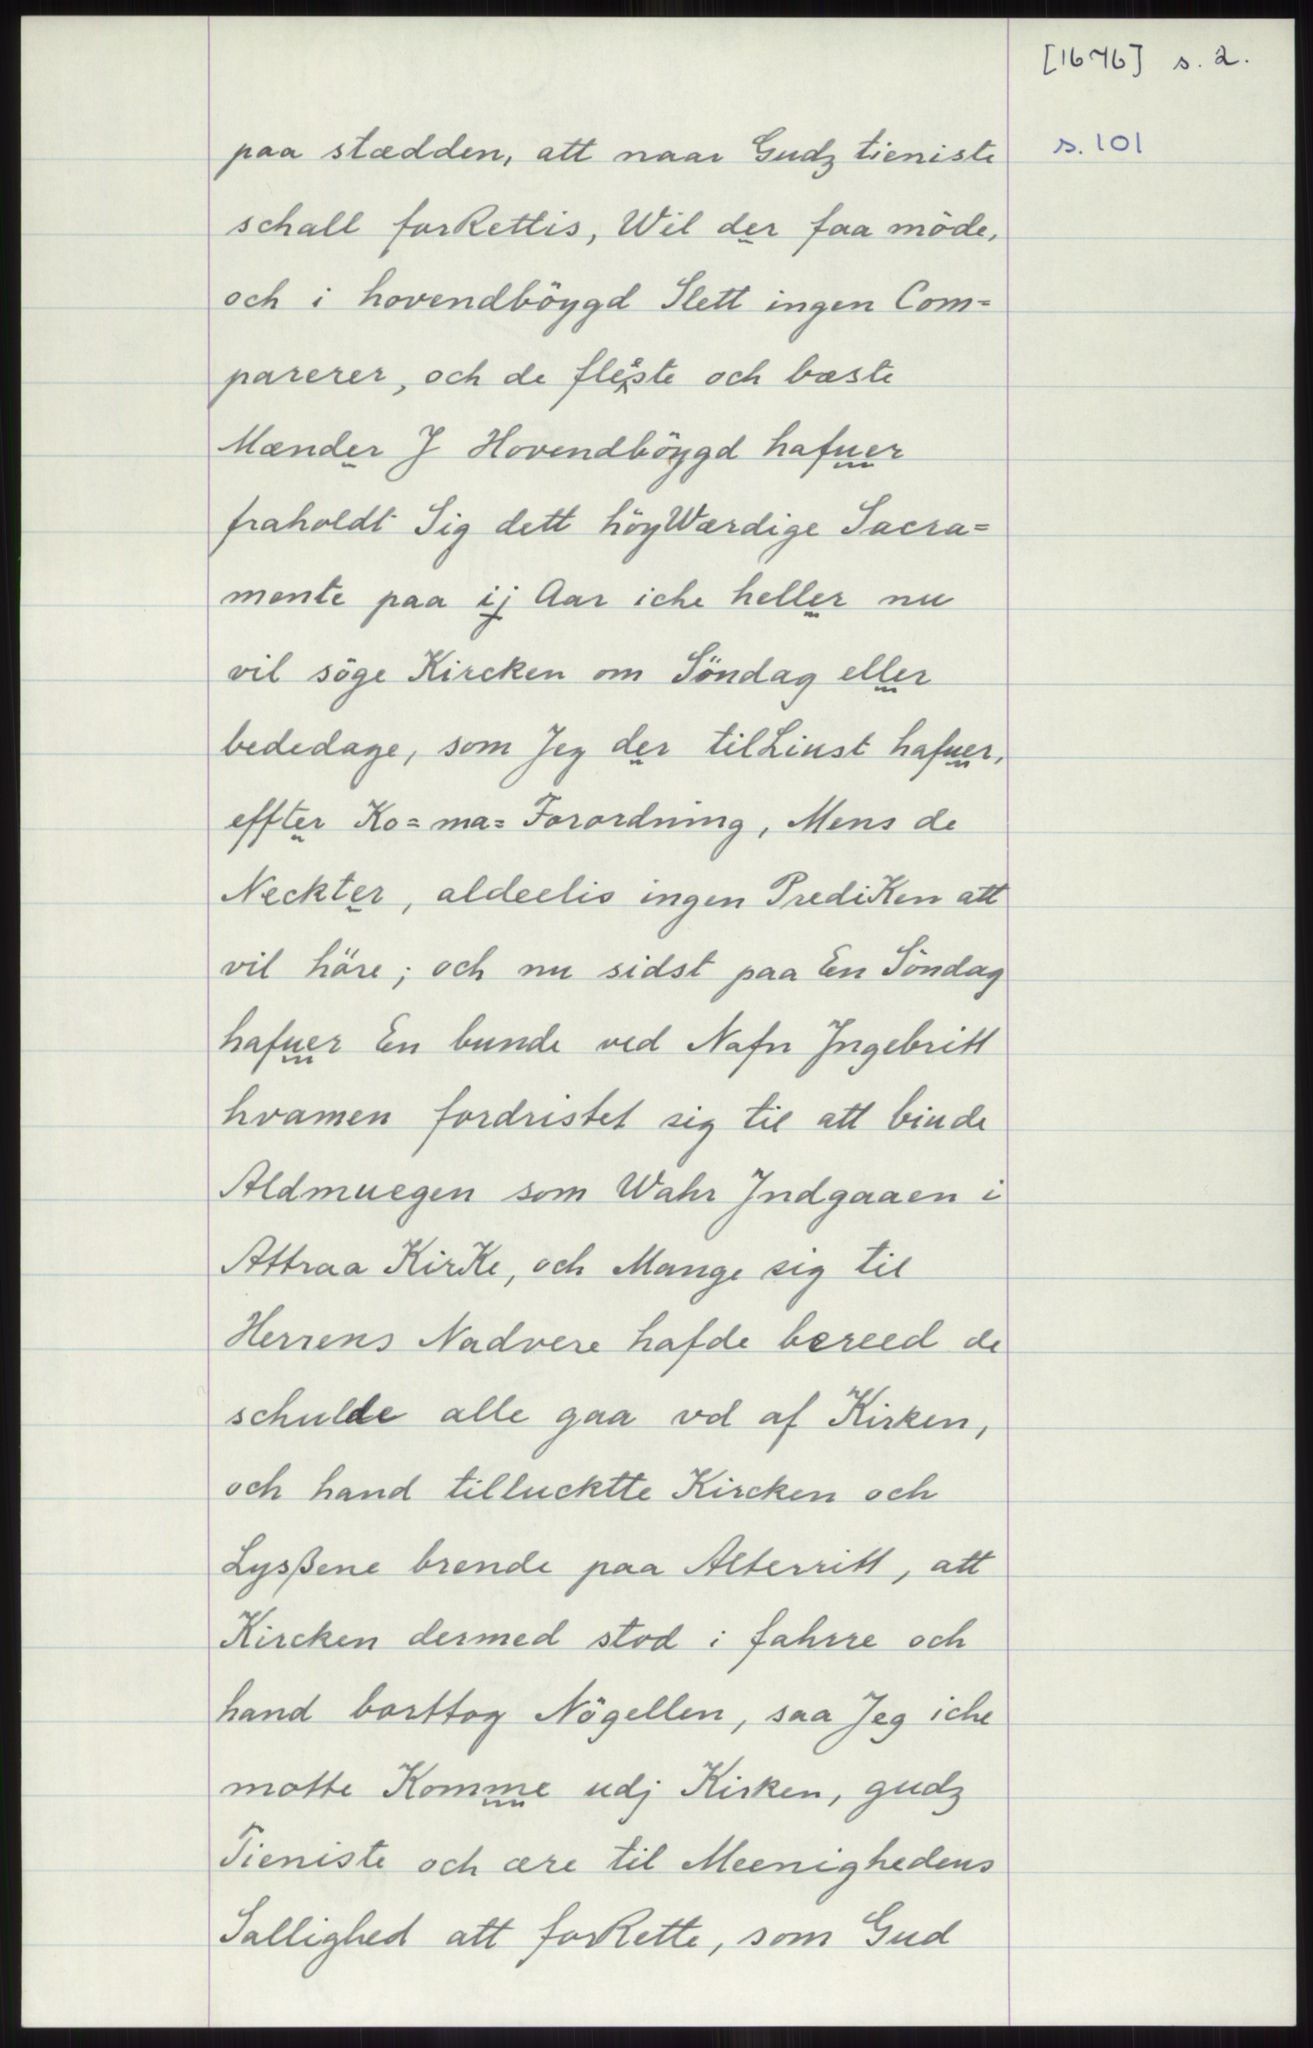 [1676] s. 2.
s. 101
paa stædden, att naar Gudz tieniste
schall forRettis, Wil der faa möde,
och i hovendböygd Slett ingen Com=
parerer, och de fleeste och bæste
Mænder J Hovendböygd hafuer
fraholdt Sig dett höyWærdige Sacra=
mente paa ij Aar iche heller nu
vil söge Kircken om Söndag eller
bededage, som Jeg der tilLiust hafuer,
effter Ko=ma= Forordning, Mens de
Neckter, aldeelis ingen PrediKen att
vil höre; och nu sidst paa En Söndag
hafuer En bunde ved Nafn Jngebritt
hvamen fordristet sig til att biude
Aldmuegen som Wahr Jndgaaen i
Attraa KirKe, och Mange sig til
Herrens Nadvere hafde bereed de
schulde alle gaa vd af Kirken,
och hand tillucktte Kircken och
Lysßene brende paa Alterritt, att
Kircken dermed stod i fahrre och
hand borttog Nögellen, saa Jeg iche
motte Komme udj Kirken, gudz
Tieniste och ære til Meenighedens
Sallighed att forRette, som Gud